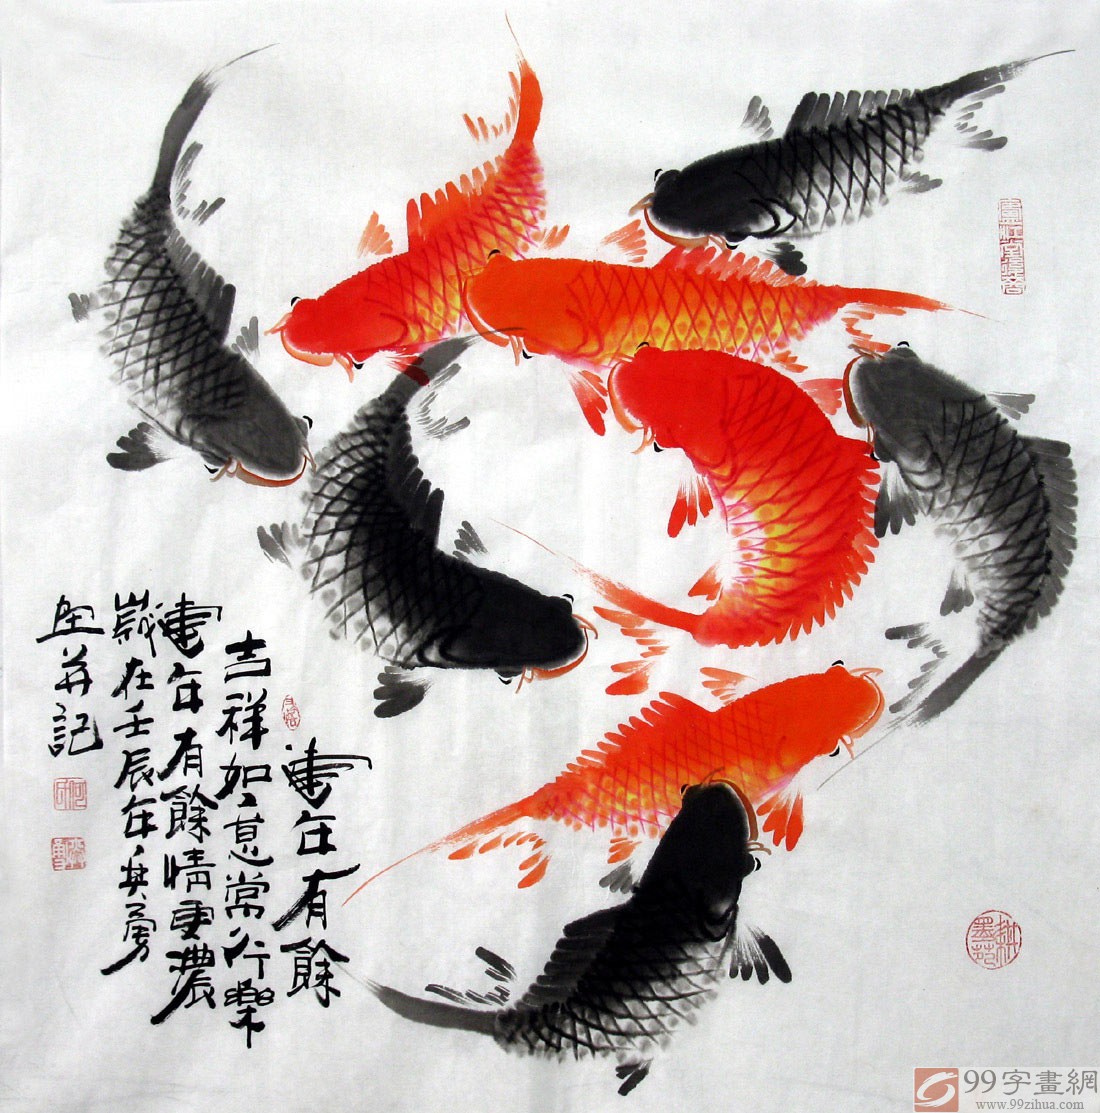 連年有餘
吉祥如意常行樂
連年有餘情更濃
歲在壬辰年勇
画并記
99字畫網
www.99zihua.com